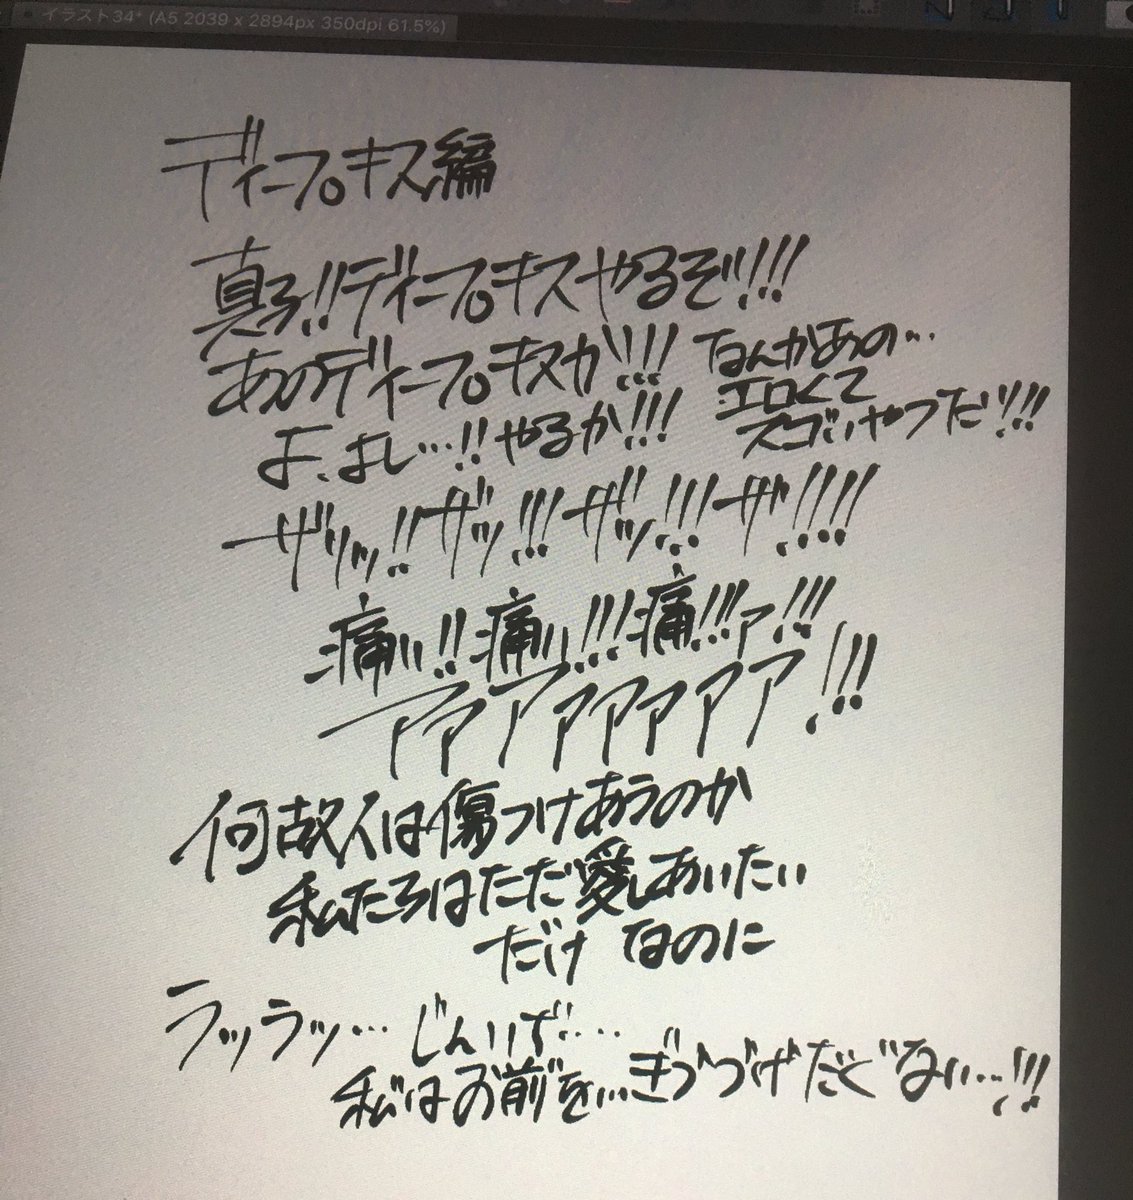 イラスト34* (A5 2039 x 2894px 350dpi 61.5%)
ディープキス編
真子!!ディープキスやるぞ!!!
あのディープキスか!!!
なんかあの…
エロくて
スゴいやつだ!!!
よ、よし…!!やるか!!!
ザリッ!!ザッ!!!ザッ!!!ザ!!!!
痛い!!痛い!!!痛!!!ァ!!!
アァアァァァアア!!!
何故人は傷つけあうのか
私たちはただ愛しあいたい
だけなのに
ラッラッ… じんいぢ…
私はお前を…ぎづづげだぐない…!!!